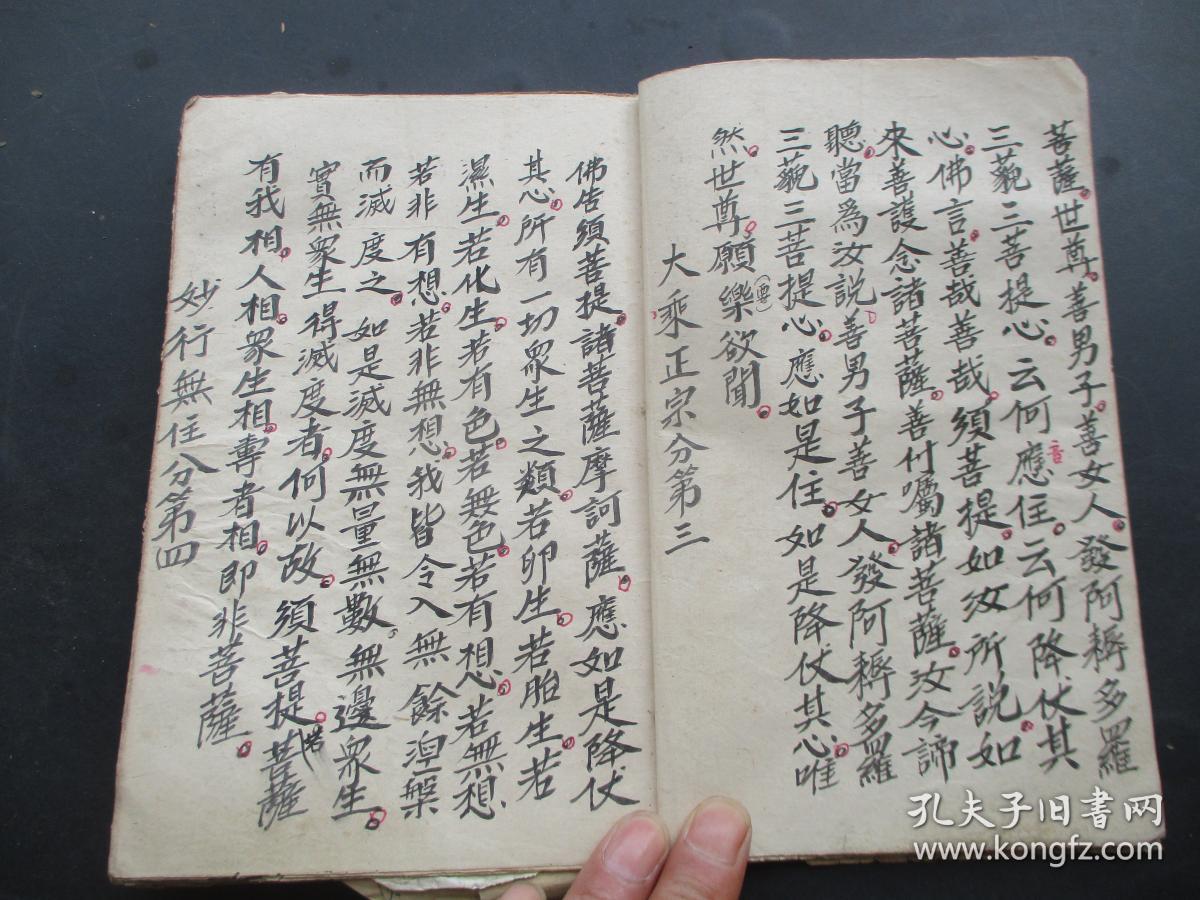 菩薩。世尊。善男子。善女人。發阿耨多羅
三藐三菩提心。云何應住。云何降伏其
心。佛言。善哉善哉。須菩提。如汝所說。如
來善護念諸菩薩。善付囑諸菩薩。汝今諦
聽。當為汝說。善男子善女人。發阿耨多羅
三藐三菩提心。應如是住。如是降伏其心。唯
然。世尊。願樂欲聞。
大乘正宗分第三
佛告須菩提。諸菩薩摩訶薩。應如是降伏
其心。所有一切衆生之類。若卵生。若胎生。若
濕生。若化生。若有色。若無色。若有想。若無想。
若非有想。若非無想。我皆令入無餘涅槃
而滅度之。如是滅度無量無數。無邊衆生。
實無衆生得滅度者。何以故。須菩提。若菩薩
有我相。人相。衆生相。專者相。即非菩薩。
妙行無住分第四
孔夫子旧书网
www.kongfz.com